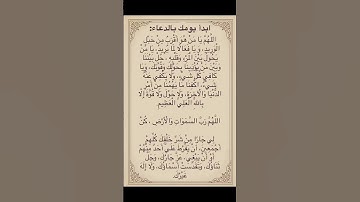 ابدأ يومك بالدعاء:
اللَّهُمَّ يَا مَنْ هُوَ أَقْرَبُ مِنْ حَبْلِ
الْوَرِيدِ، وَ يَا فَعَّالًا لِمَا يُرِيدُ، يَا مَنْ
يَحُولُ بَيْنَ الْمَرْءِ وَقَلْبِهِ ، حُلْ بَيْنَنَا
وَبَيْنَ مَنْ يُؤْذِينَا بِحَوْلِكَ وَقُوَّتِكَ، وَيَا
كَافِي كُلِّ شَيْءٍ، وَلَا يَكْفِي عَنْهُ
شَيْءٌ، اكْفِنَا مَا يُهِمُّنَا مِنْ أَمْرِ
الدُّنْيَا وَالْآخِرَةِ، وَلَا حَوْلَ وَلَا قُوَّةَ إِلَّا
بِاللَّهِ الْعَلِيِّ الْعَظِيمِ
اللَّهُمَّ رَبَّ السَّمَوَاتِ وَالْأَرْضِ ، كُنْ
لِي جَارًا مِنْ شَرِّ خَلْقِكَ كُلِّهِمْ
أَجْمَعِينَ، أَنْ يَفْرُطَ عَلَيَّ أَحَدٌ مِنْهُمْ
أَوْ أَنْ يَبْغِيَ، عَزَّ جَارُكَ، وَجَلَّ
ثَنَاؤُكَ، وَتَقَدَّسَتْ أَسْمَاؤُكَ، وَلَا إِلَهَ
غَيْرُكَ